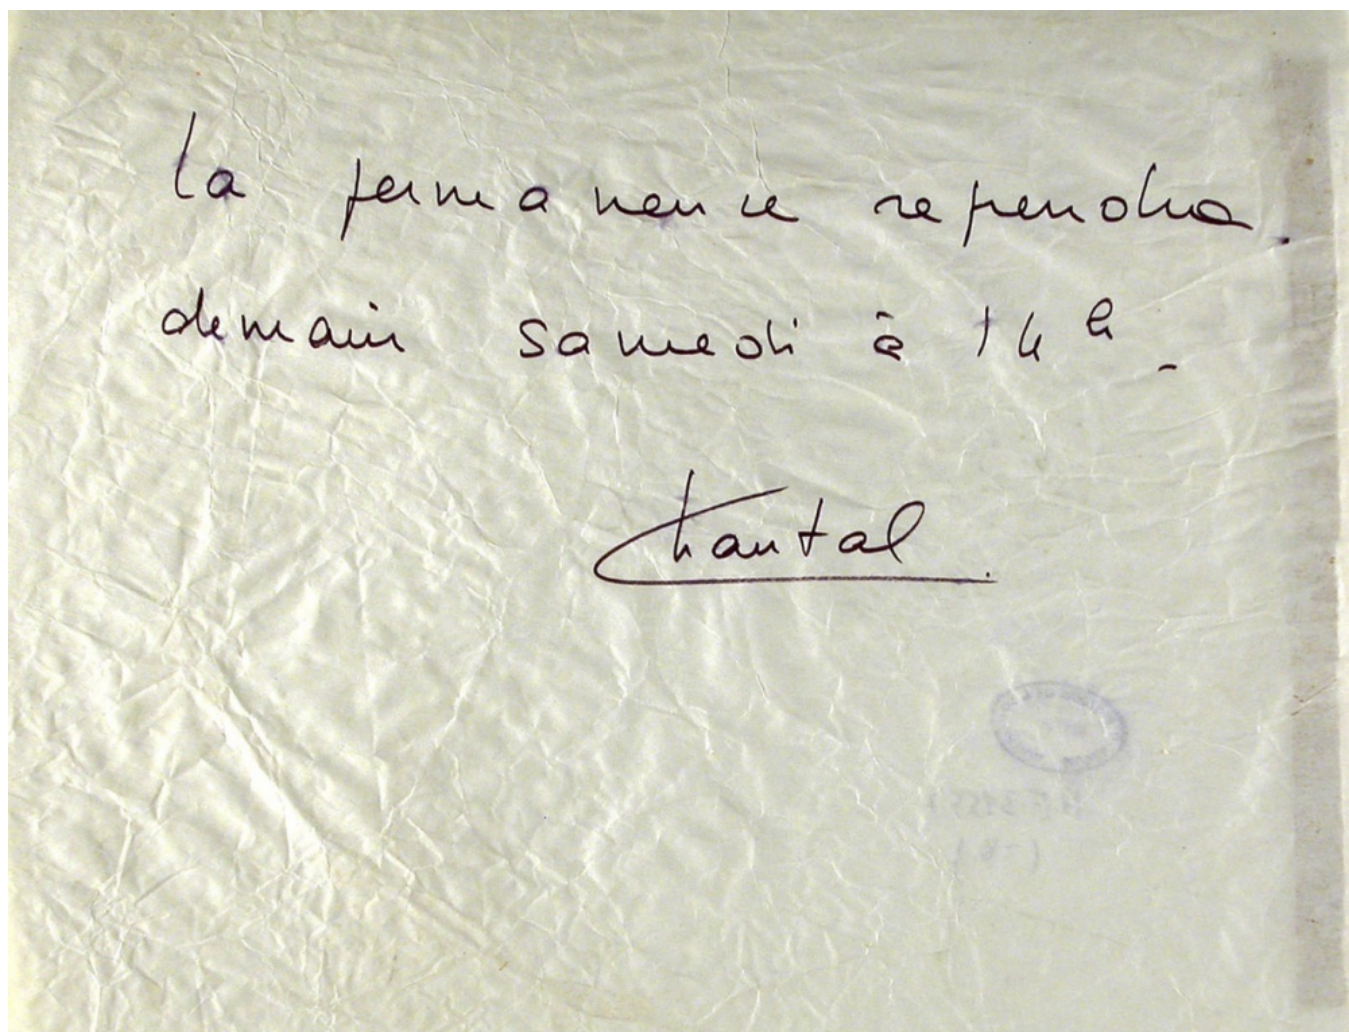 la permanence reprendra
demain samedi à 14h.
Chantal